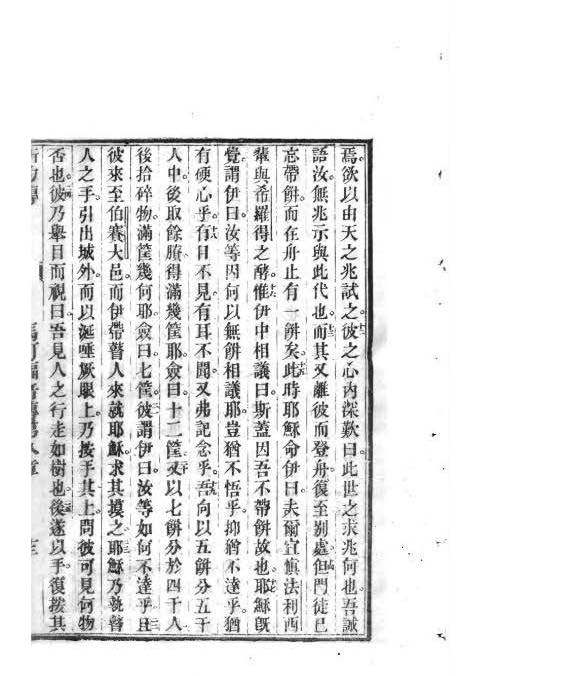 焉欲以由天之兆試之彼之心內深歎曰此世之求兆何也吾誠
語汝無兆示與此代也而其又離彼而登舟復至別處但門徒已
忘帶餅而在舟止有一餅矣此時耶穌命伊曰夫爾宜慎法利西
輩與希羅得之酵惟伊中相議曰斯蓋因吾不帶餅故也耶穌既
覺謂伊曰汝等因何以無餅相議耶豈猶不悟乎抑猶不達乎猶
有硬心乎有目不見有耳不聞又弗記念乎吾向以五餅分五千
人中後取餘賸得滿幾筐耶僉曰十二筐又以七餅分於四千人
後拾碎物滿筐幾何耶僉曰七筐彼謂伊曰汝等如何不達乎且
彼來至伯賽大邑而伊帶瞽人來就耶穌求其摸之耶穌乃執瞽
人之手引出城外而以涎唾厥眼上乃按手其上問彼可見何物
否也彼乃舉目而視曰吾見人之行走如樹也後遂以手復按其